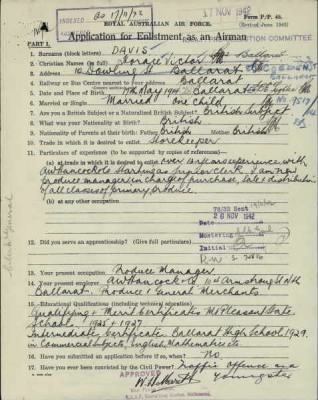 INDEXED
as 17/11/42
17 NOV 1942
Form P/P. 40.
ROYAL AUSTRALIAN AIR FORCE.
Application for Enlistment as an Airman
COMMITTEE
PART 1.
1. Surname (block letters) DAVIS
Ballarat
2. Christian Names (in full) Horace Victor
3. Address 10 Dowling St Ballarat
4. Railway or Bus Centre nearest to your address Ballarat
5. Date and Place of Birth 11th May 1914 Ballarat
6. Married or Single Married one child
7. Are you a British Subject or a Naturalised British Subject? British Subject
8. What was your Nationality at Birth? British
9. Nationality of Parents at their Birth: Father British Mother British
10. Trade in which it is desired to enlist Storekeeper
11. Particulars of experience (to be supported by copies of references)—
(a) at trade in which it is desired to enlist over 12 years experience with
AW Hancock & Co starting as junior clerk & am now
produce manager in charge of purchase, sale & distribution
of all classes of primary produce
(b) at any other occupation
Date
26 NOV 1942
Mustering
Initial
12. Did you serve an apprenticeship? (Give full particulars)
13. Your present occupation Produce Manager
14. Your present employer AW Hancock & Co 10 Armstrong St Nth
Ballarat. Produce & General Merchants.
15. Educational Qualifications (including technical education)
Qualifying & Merit Certificates Mt Pleasant State
School 1925 & 1927
Intermediate Certificate Ballarat High School 1929.
in Commercial Subjects, English, Mathematics etc.
16. Have you submitted an application before if so, when? No
17. Have you ever been convicted by the Civil Power? Traffic Offence as a
youngster
APPROVED